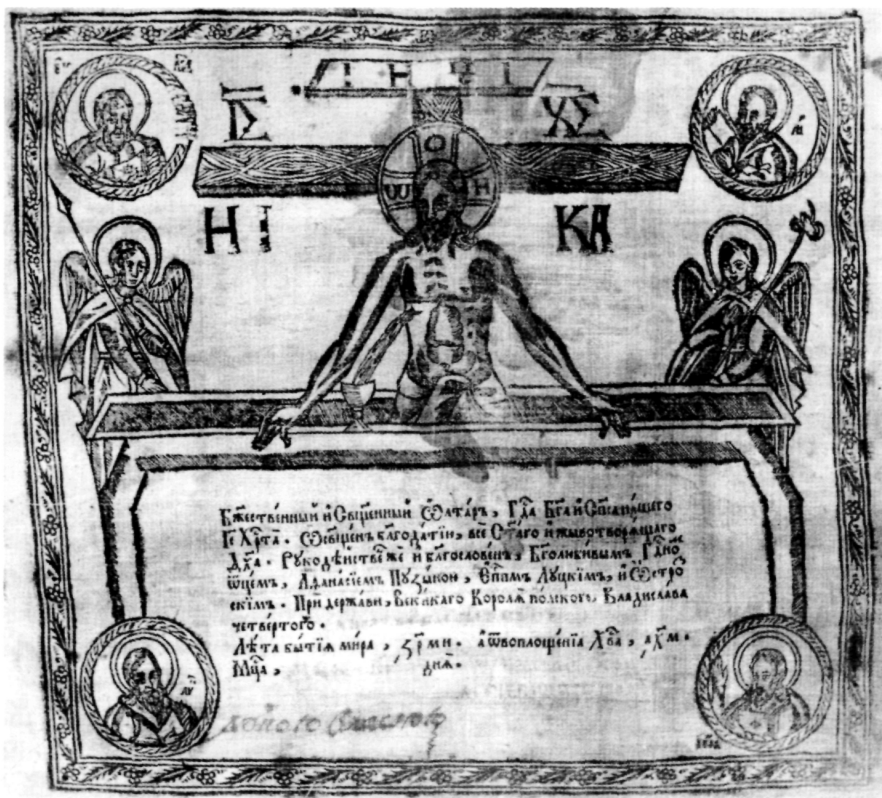 І Н Ц І
ІС ХС
НІ КА
Ѡ О Н
Бж҃ественный и҆ Сщ҃енный Ѻлтаръ, Гд҃а Бг҃а и҆ Сп҃са на́шего
Іс Хрт҃а. Ѡсщ҃енъ благодатїю, все Ст҃а́го и҆ животворѧ́щаго
Дх҃а. Рукодѣ́йствже́ же и҆ благослове́нъ, Бголюбивымъ Гд҃но
ѿцемъ, Аѳана́сїемъ Пузы́ною, Еп҃пмъ Луцкімъ, и҆ Ѻстро
скімъ. При держа́ви, Вели́каго Королѧ̀ по́лского, Владислава
четве́ртого.
Лѣ́та бытїѧ ми́ра, ҂зрм҃и. а҆ ѿ воплоще́нїа Хв҃а, ҂ахм҃.
Мц҃а, днѧ̀.
ЛУ